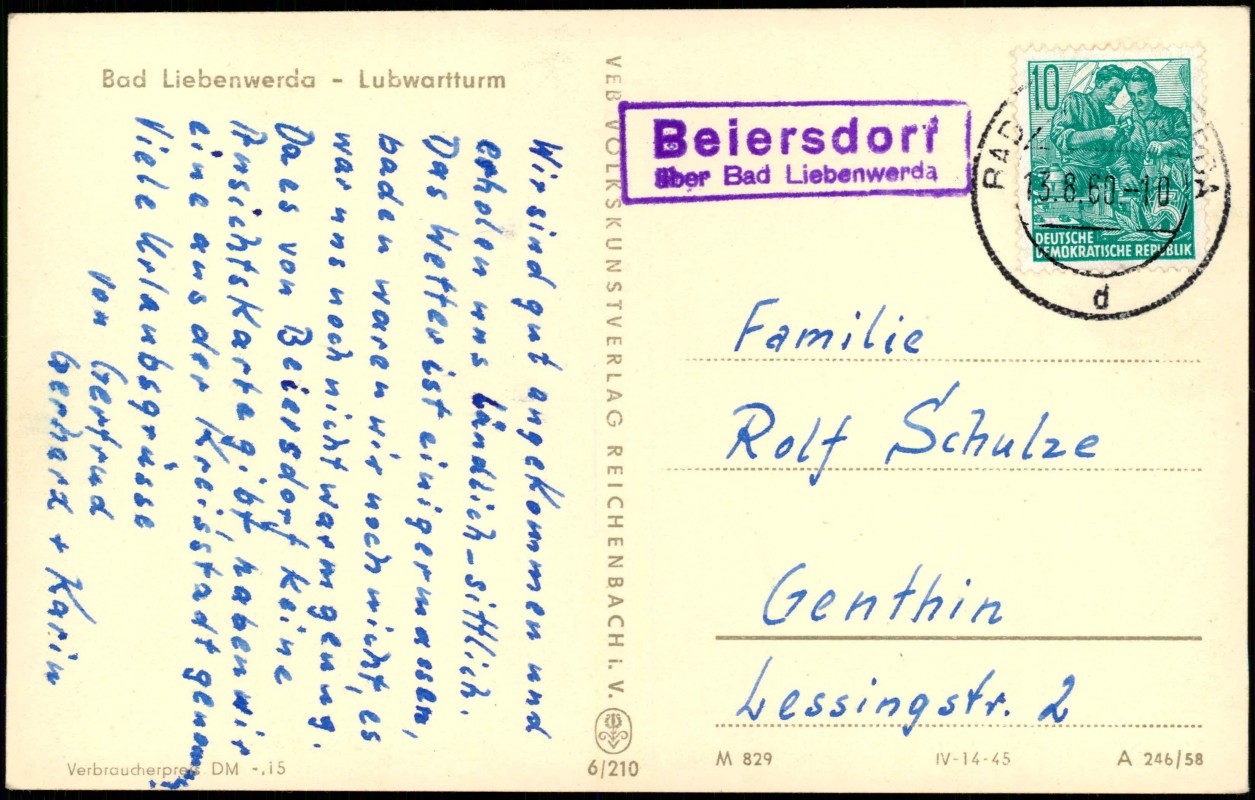 Bad Liebenwerda - Lubwartturm
Wir sind gut angekommen und
erholen uns ländlich-sittlich.
Das Wetter ist einigermassen,
baden waren wir noch nicht, es
war uns noch nicht warm genung.
Da es von Beiersdorf keine
Ansichtskarte gibt haben wir
eine aus der Kreisstadt genom̄
Viele Urlaubsgrüsse
von Gertrud
Gerhard + Karin
Verbraucherpreis DM -.15
VEB VOLKSKUNSTVERLAG REICHENBACH i. V.
6/210
Beiersdorf
über Bad Liebenwerda
10
DEUTSCHE
DEMOKRATISCHE REPUBLIK
13.8.60.-10
d
Familie
Rolf Schulze
Genthin
Lessingstr. 2
M 829
IV-14-45
A 246/58